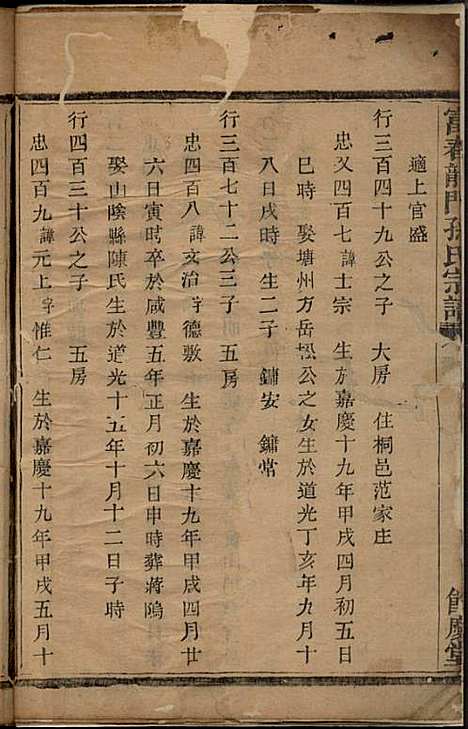 富春龍門孫氏宗譜 餘慶堂
適上官盛
行三百四十九公之子 大房 住桐邑范家庄
忠又四百七諱士宗 生於嘉慶十九年甲戌四月初五日
巳時 娶塘州方岳崧公之女生於道光丁亥年九月十
八日戌時 生二子 鏞安 鏞常
行三百七十二公三子 五房
忠四百八諱文治字德敷 生於嘉慶十九年甲戌四月廿
六日寅时卒於咸豐五年正月初六日申時葬蔣鳴
娶山陰縣陳氏生於道光十五年十月十二日子時
行四百三十公之子 五房
忠四百九諱元上字惟仁 生於嘉慶十九年甲戌五月十